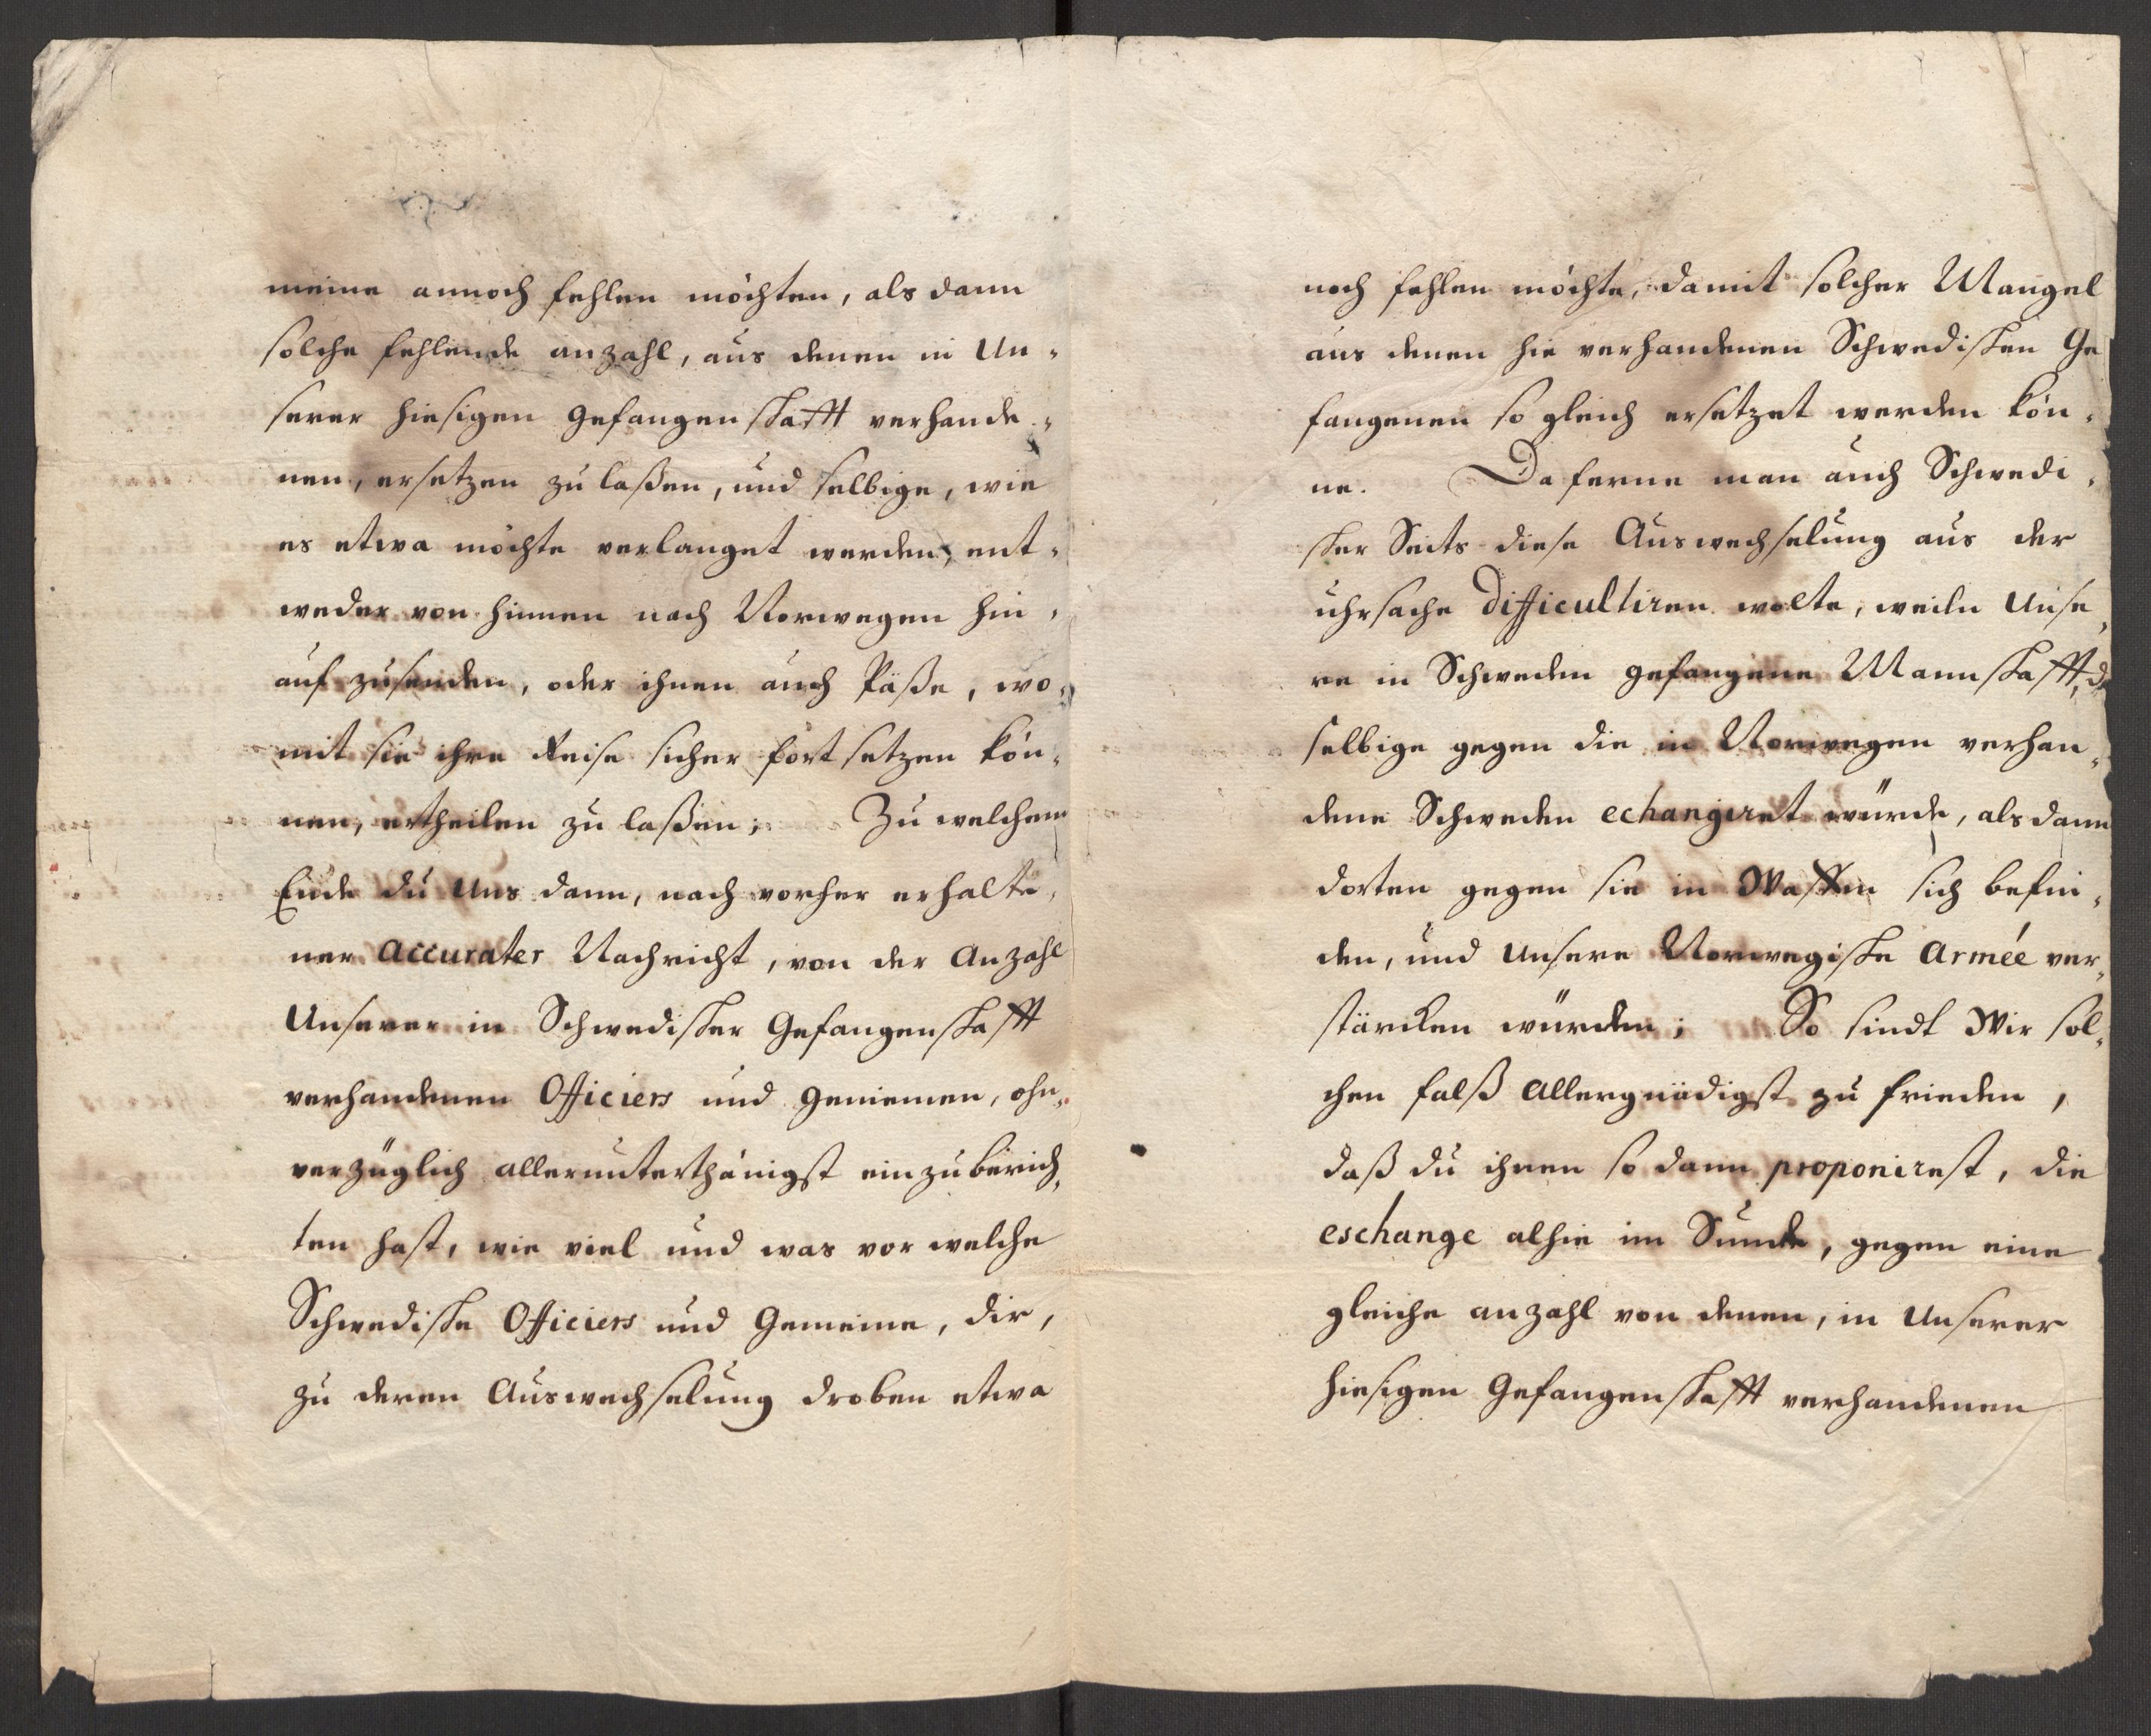 meine annoch fehlen möchten, als dann
solche fehlende anzahl, aus denen in Un-
serer hiesigen gefangenschafft verhande-
nen, ersetzen zu laßen, und selbige, wie
es etwa möchte verlanget werden, ent-
weder von hinnen nach Norwegen hin-
auf zusenden, oder ihnen auch Päße, wo-
mit sie ihre Reise sicher fortsetzen kön-
nen, ertheilen zu laßen; Zu welchem
Ende du Uns dann, nach vorher erhalte-
ner accurater Nachricht, von der Anzahl
Unserer in Schwedischer Gefangenschafft
verhandenen Officiers und gemeinen, ohn-
verzüglich allerunterthänigst einzuberich-
ten hast, wie viel und was vor welche
Schwedische Officiers und Gemeine, dir,
zu deren Auswechselung droben etwa
noch fehlen möchte, damit solcher Mangel
aus denen hie verhandenen Schwedischen Ge
fangenen so gleich ersetzet werden kön-
ne. Da ferne man auch Schwedi-
scher Seits diese Auswechselung aus der
uhrsache difficultiren wolte, weiln Unse-
re in Schweden gefangene Mannschafft, da
selbige gegen die in Norwegen verhan-
dene Schweden echangiret würde, als dann
dorten gegen sie in Waffen sich befin-
den, und Unsere Norwegische Armée ver-
stärcken würden; So sindt Wir sol-
chen falß allergnädigst zu frieden,
daß du ihnen so dann proponirest, die
eschange alhie im Sunde, gegen eine
gleiche anzahl von denen, in Unserer
hiesigen Gefangenschafft verhandenen